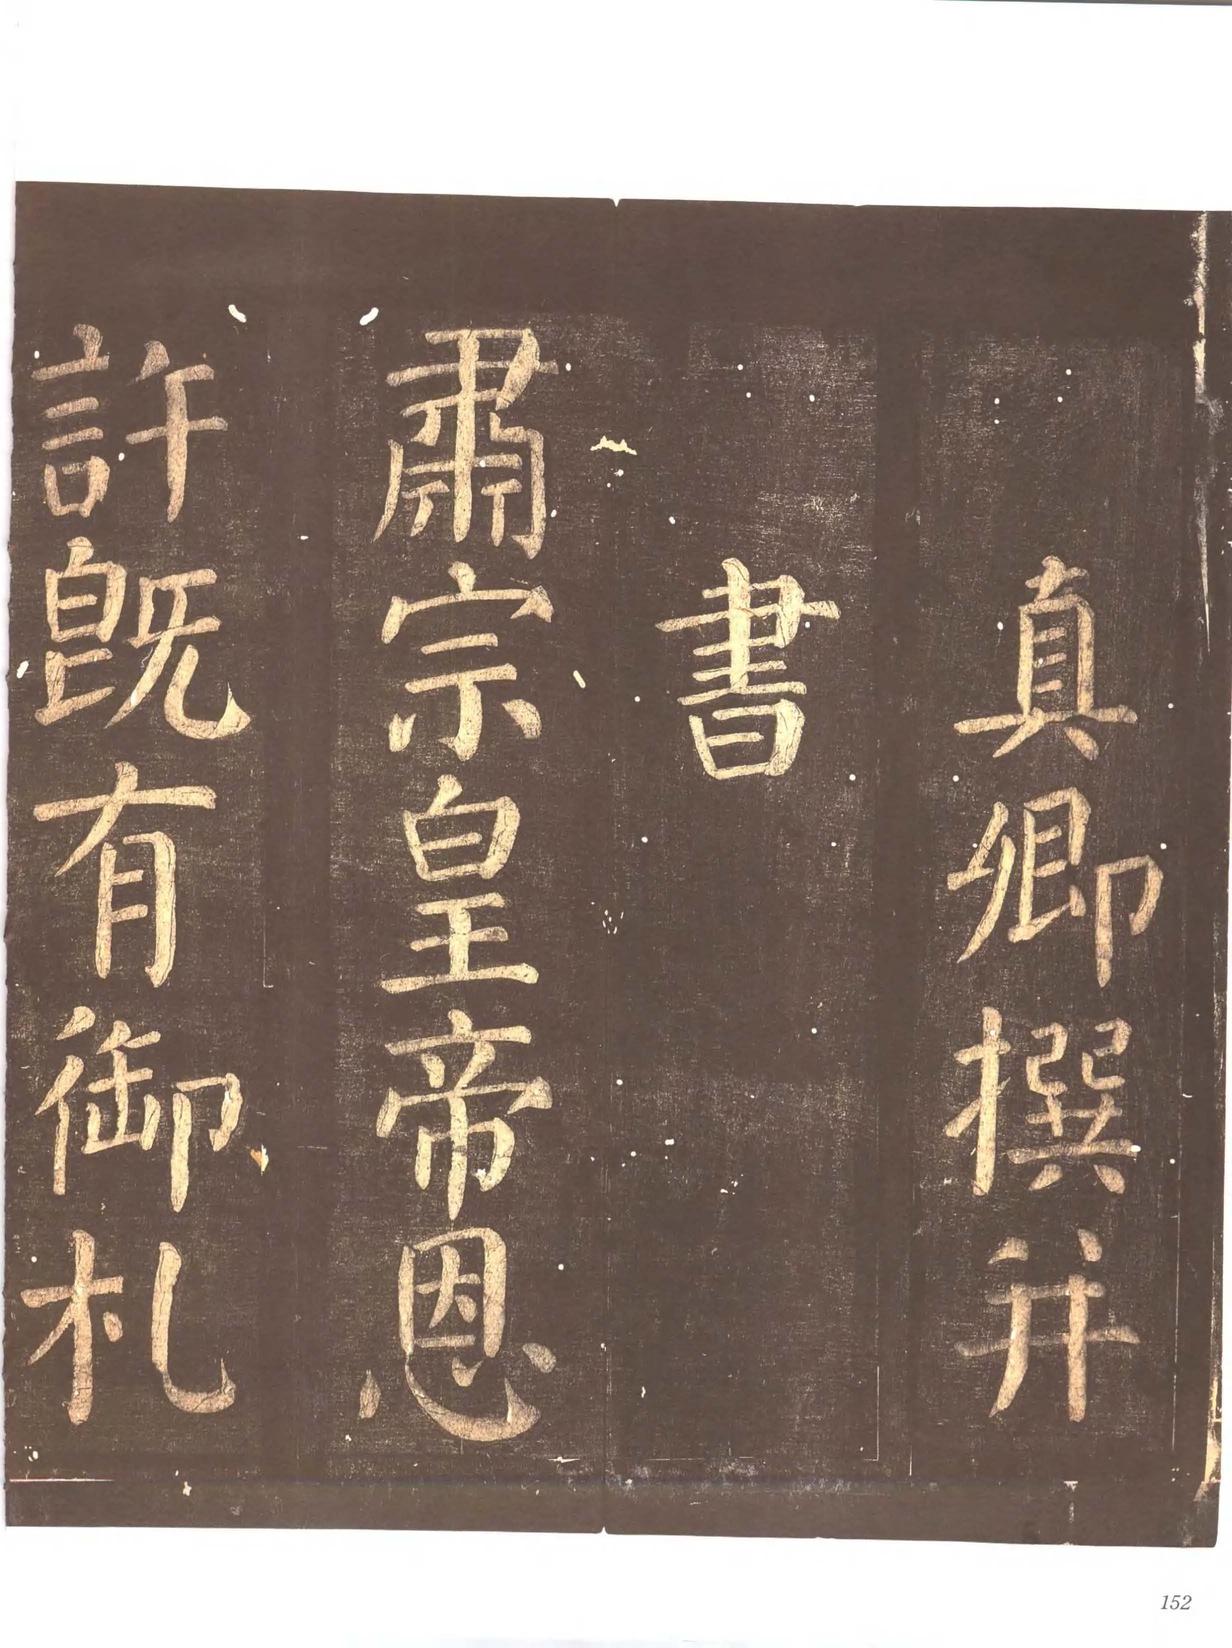 真卿撰并
書
肅宗皇帝恩
許既有御札
152